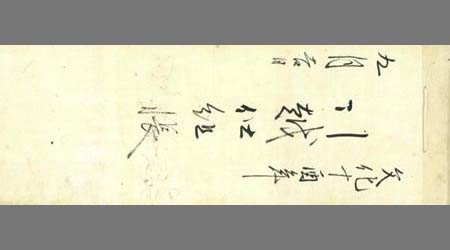 文化十酉年
引越仕組帳
九月吉日